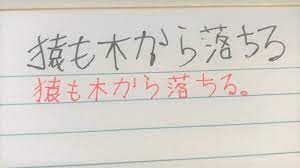 猿も木から落ちる
猿も木から落ちる。